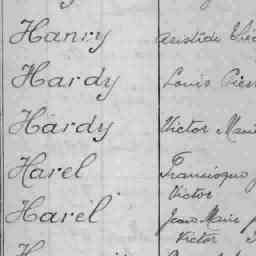 Hanry Aristide
Hardy Louis
Hardy Victor Marie
Harel Francisque
Victor
Harel Jean Marie
Victor